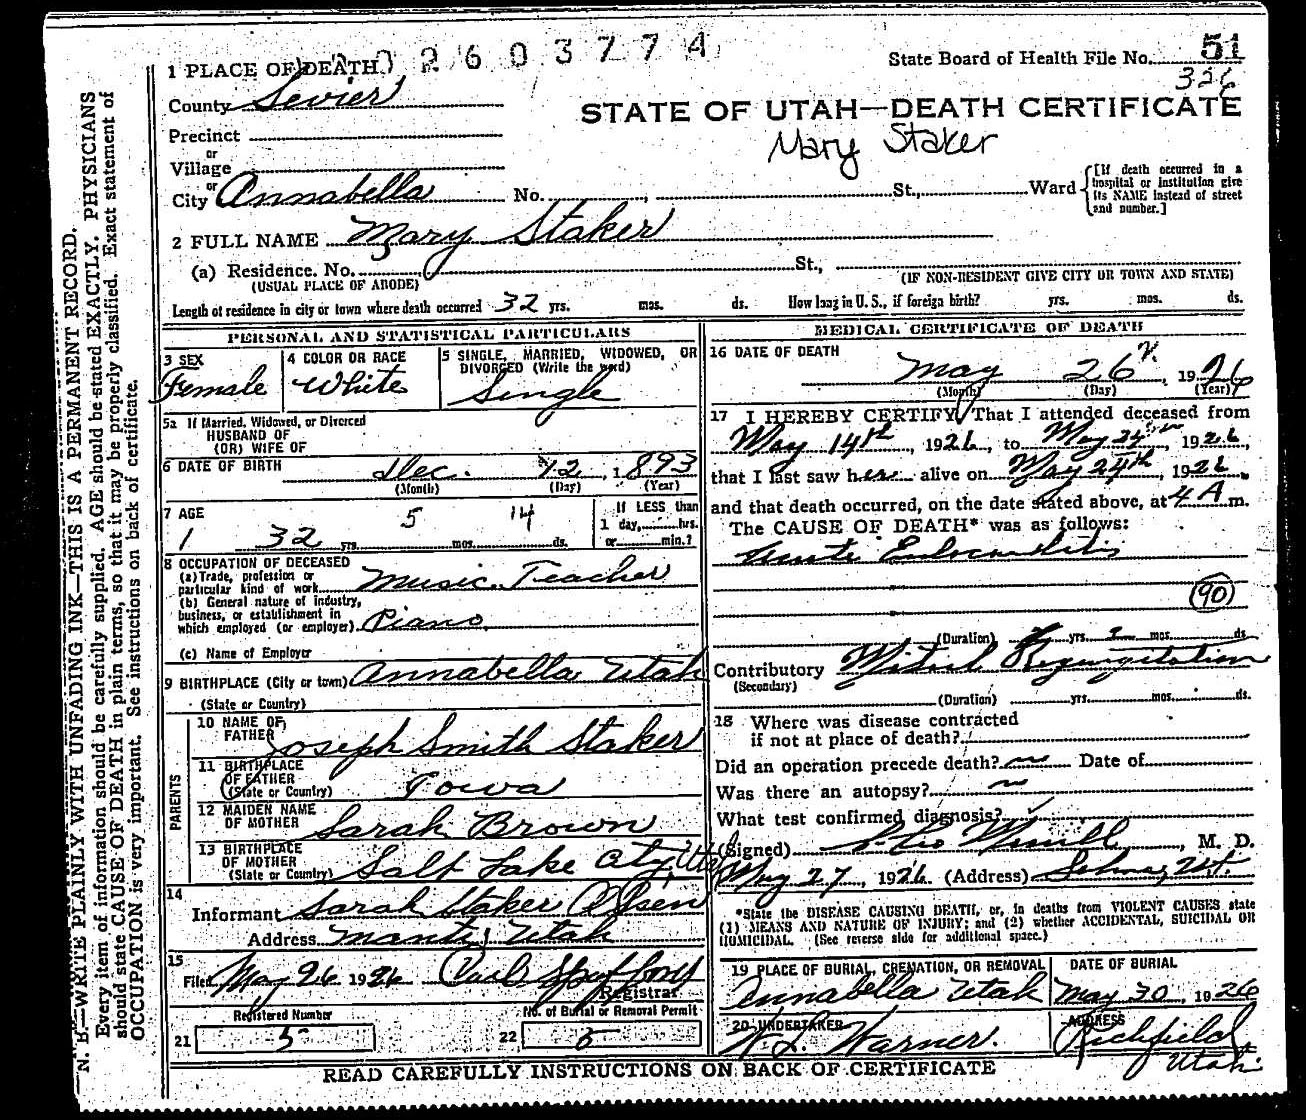 2603774
State Board of Health File No. 51
326
1 PLACE OF DEATH
County Sevier
STATE OF UTAH—DEATH CERTIFICATE
Mary Staker
Precinct
or
Village
or
City Annabella No. , St., Ward
[If death occurred in a hospital or institution give its NAME instead of street and number.]
2 FULL NAME Mary Staker
(a) Residence. No. St.,
(USUAL PLACE OF ABODE) (IF NON-RESIDENT GIVE CITY OR TOWN AND STATE)
Length of residence in city or town where death occurred 32 yrs. mos. ds. How long in U. S., if foreign birth? yrs. mos. ds.
PERSONAL AND STATISTICAL PARTICULARS
3 SEX
Female
4 COLOR OR RACE
White
5 SINGLE, MARRIED, WIDOWED, OR
DIVORCED (Write the word)
Single
5a If Married, Widowed, or Divorced
HUSBAND OF
(OR) WIFE OF
6 DATE OF BIRTH Dec. 12, 1893
(Month) (Day) (Year)
7 AGE
32 yrs. 5 mos. 14 ds.
If LESS than
1 day, hrs.
or min.?
8 OCCUPATION OF DECEASED
(a) Trade, profession or
particular kind of work Music Teacher
(b) General nature of industry,
business, or establishment in
which employed (or employer) Piano
(c) Name of Employer
9 BIRTHPLACE (City or town) Annabella Utah
(State or Country)
PARENTS
10 NAME OF
FATHER Joseph Smith Staker
11 BIRTHPLACE
OF FATHER
(State or Country) Iowa
12 MAIDEN NAME
OF MOTHER Sarah Brown
13 BIRTHPLACE
OF MOTHER
(State or Country) Salt Lake City, Utah
14
Informant Sarah Staker Olsen
Address Manti, Utah
15
Filed May 26 1926
Registrar
Registered Number
21 5
No. of Burial or Removal Permit
22 5
MEDICAL CERTIFICATE OF DEATH
16 DATE OF DEATH
May 26, 1926
(Month) (Day) (Year)
17 I HEREBY CERTIFY, That I attended deceased from
May 14th, 1926, to May 24th, 1926,
that I last saw her alive on May 24th, 1926,
and that death occurred, on the date stated above, at 4 A m.
The CAUSE OF DEATH* was as follows:
Acute Endocarditis
90
(Duration) yrs. mos. ds.
Contributory Mitral Regurgitation
(Secondary)
(Duration) yrs. mos. ds.
18 Where was disease contracted
if not at place of death?
Did an operation precede death? no Date of
Was there an autopsy? no
What test confirmed diagnosis?
(Signed) , M. D.
May 27, 1926 (Address) Salina, Ut.
*State the DISEASE CAUSING DEATH, or, in deaths from VIOLENT CAUSES state
(1) MEANS AND NATURE OF INJURY; and (2) whether ACCIDENTAL, SUICIDAL OR
HOMICIDAL. (See reverse side for additional space.)
19 PLACE OF BURIAL, CREMATION, OR REMOVAL
Annabella Utah
DATE OF BURIAL
May 30, 1926
20 UNDERTAKER
Warner.
ADDRESS
Richfield
Utah.
READ CAREFULLY INSTRUCTIONS ON BACK OF CERTIFICATE
N. B.—WRITE PLAINLY WITH UNFADING INK—THIS IS A PERMANENT RECORD.
Every item of information should be carefully supplied. AGE should be stated EXACTLY. PHYSICIANS
should state CAUSE OF DEATH in plain terms, so that it may be properly classified. Exact statement of
OCCUPATION is very important. See instructions on back of certificate.